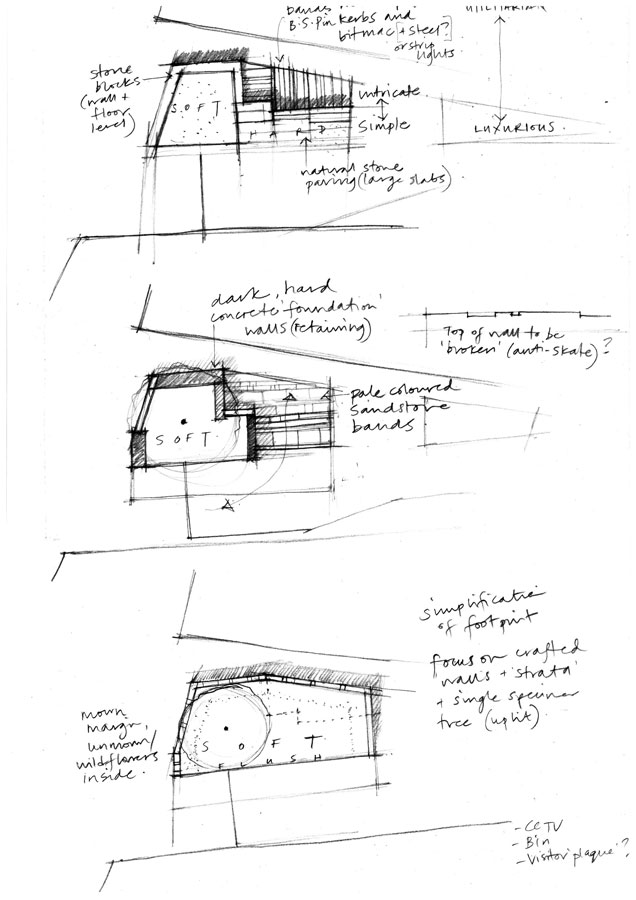 bands...
B.S. Pin kerbs and
bitmac [+ steel?]
or strip
lights
UTILITARIAN
stone
blocks
(wall +
floor
level)
SOFT
HARD
intricate
simple
LUXURIOUS.
natural stone
paving (large slabs)
dark, hard
concrete 'foundation'
walls (retaining)
Top of wall to be
'broken' (anti-skate)?
pale coloured
sandstone
bands
SOFT
simplificatio
of footprint
focus on crafted
'walls + strata'
+ single specimen
tree (uplit).
mown
margin,
unmown/
wildflowers
inside.
SOFT
FLUSH
- CCTV
- Bin
- Visitor plaque?